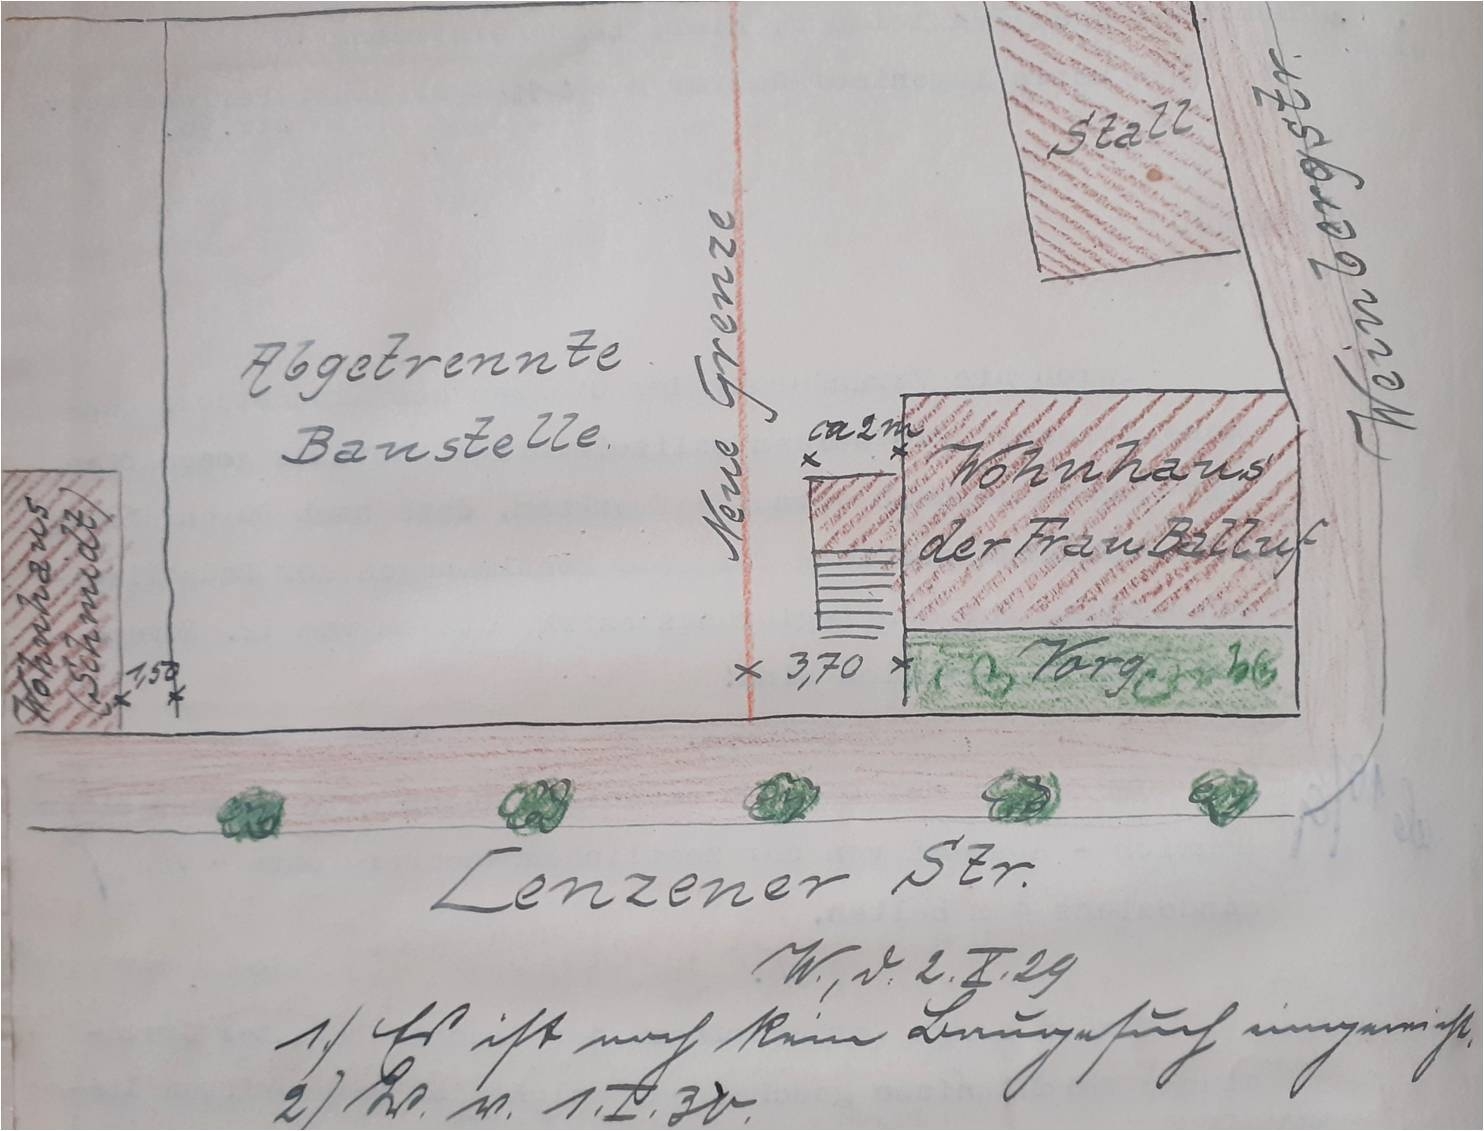 Stall
Weinbergstr.
Neue Grenze
Abgetrennte
Baustelle
ca 2 m
Wohnhaus
der Frau Balluf
Wohnhaus
(Schmidt)
1,50
3,70
Vorg
Lenzener Str.
W., d. 2.X.29
1.) Es ist noch kein Baugesuch eingereicht.
2) W. v. 1.X.30.